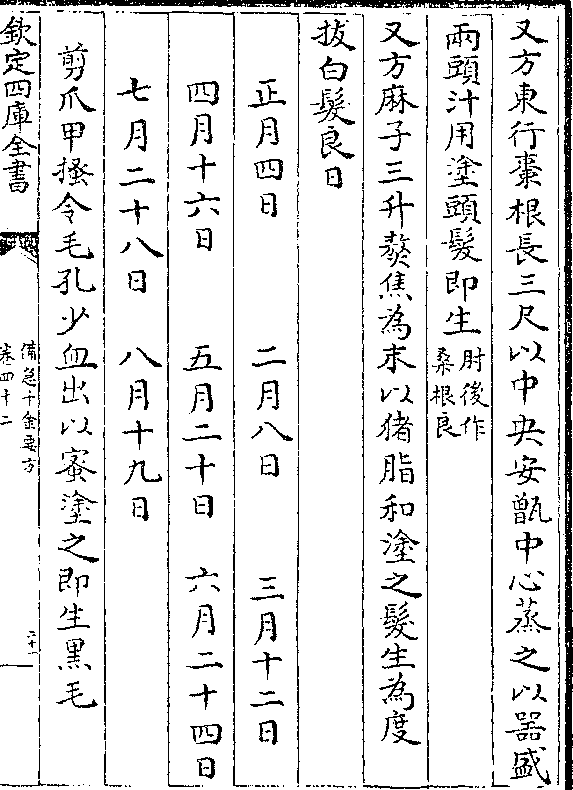 又方東行棗根長三尺以中央安甑中心蒸之以器盛
兩頭汁用塗頭髮即生肘後作桑根良
又方麻子三升熬焦為末以猪脂和塗之髮生為度
拔白髮良日
正月四日 二月八日 三月十二日
四月十六日 五月二十日 六月二十四日
七月二十八日 八月十九日
剪爪甲搔令毛孔少血出以蜜塗之即生黑毛
欽定四庫全書
備急千金要方
卷四十二